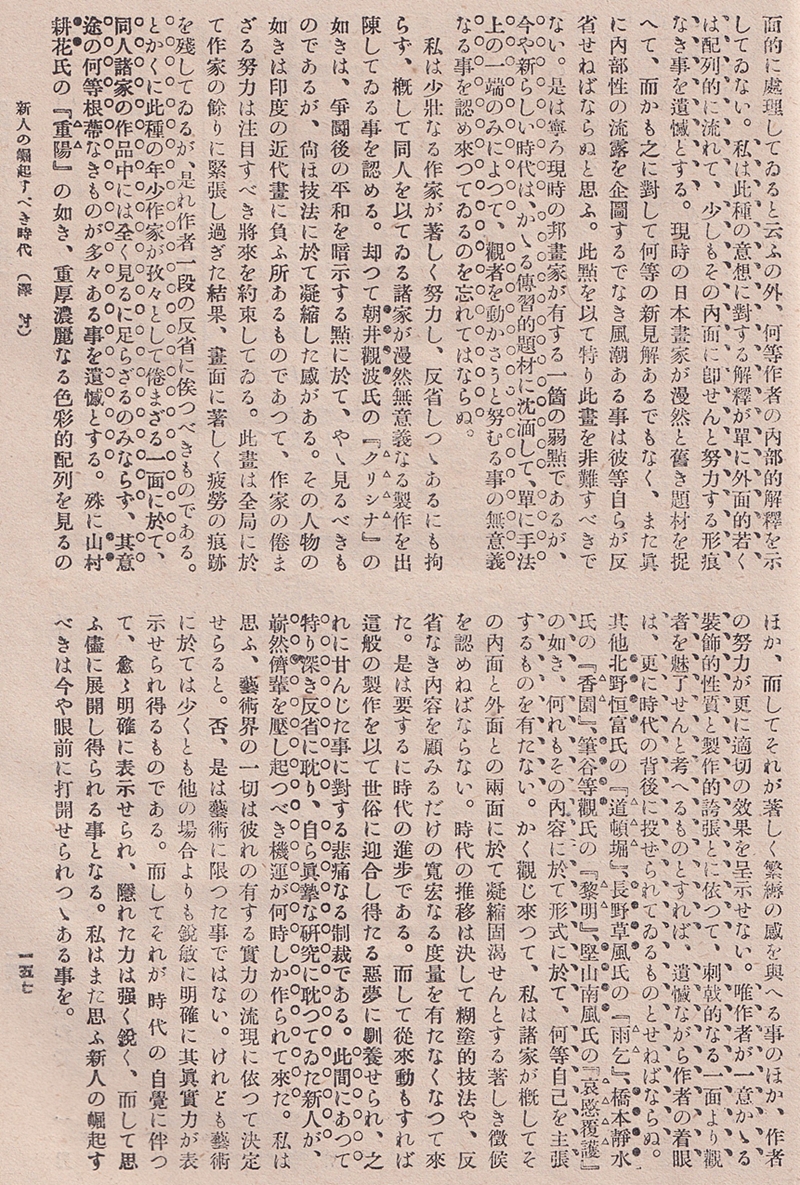 面的に處理してゐると云ふの外、何等作者の內部的解釋を示
してゐない。私は此種の意想に對する解釋が單に外面的若く
は配列的に流れて、少しもその內面に卽せんと努力する形痕
なき事を遺憾とする。現時の日本畫家が漫然と舊き題材を捉
へて、而かも之に對して何等の新見解あるでもなく、また眞
に內部性の流露を企圖するでなき風潮ある事は彼等自らが反
省せねばならぬと思ふ。此點を以て特り此畫を非難すべきで
ない。是は寧ろ現時の邦畫家が有する一箇の弱點であるが、
今や新らしい時代は、かゝる傳習的題材に沈湎して、單に手法
上の一端のみによつて、觀者を動かさうと努むる事の無意義
なる事を認め來つてゐるのを忘れてはならぬ。
私は少壯なる作家が著しく努力し、反省しつゝあるにも拘
らず、槪して同人を以てゐる諸家が漫然無意義なる製作を出
陳してゐる事を認める。却つて朝井觀波氏の『クリシナ』の
如きは、爭鬪後の平和を暗示する點に於て、やゝ見るべきも
のであるが、尙ほ技法に於て凝縮した感がある。その人物の
如きは印度の近代畫に負ふ所あるものであつて、作家の倦ま
ざる努力は注目すべき將來を約束してゐる。此畫は全局に於
て作家の餘りに緊張し過ぎた結果、畫面に著しく疲勞の痕跡
を殘してゐるが、是れ作者一段の反省に俟つべきものである。
とかくに此種の年少作家が孜々として倦まざる一面に於て、
同人諸家の作品中には全く見るに足らざるのみならず、其意
途の何等根蔕なきものが多々ある事を遺憾とする。殊に山村
耕花氏の『重陽』の如き、重厚濃麗なる色彩的配列を見るの
新人の崛起すべき時代(澤村)
ほか、而してそれが著しく繁縟の感を與へる事のほか、作者
の努力が更に適切の效果を呈示せない。唯作者が一意かゝる
裝飾的性質と製作的誇張とに依つて、刺戟的なる一面より觀
者を魅了せんと考へるものとすれば、遺憾ながら作者の着眼
は、更に時代の背後に投せられてゐるものとせねばならぬ。
其他北野恒富氏の『道頓堀』、長野草風氏の『雨乞』、橋本靜水
氏の『香園』、筆谷等觀氏の『黎明』、堅山南風氏の『哀愍覆護』
の如き、何れもその內容に於て形式に於て、何等自己を主張
するものを有たない。かく觀じ來つて、私は諸家が槪してそ
の內面と外面との兩面に於て凝縮固渴せんとする著しき徵候
を認めねばならない。時代の推移は決して糊塗的技法や、反
省なき內容を顧みるだけの寬宏なる度量を有たなくなつて來
た。是は要するに時代の進步である。而して從來動もすれば
這般の製作を以て世俗に迎合し得たる惡夢に馴養せられ、之
れに甘んじた事に對する悲痛なる制裁である。此間にあつて
特り深き反省に耽り、自ら眞摯な硏究に耽つてゐた新人が、
嶄然儕輩を壓し起つべき機運が何時しか作られて來た。私は
思ふ、藝術界の一切は彼れの有する實力の流現に依つて決定
せらると。否、是は藝術に限つた事ではない。けれども藝術
に於ては少くとも他の場合よりも銳敏に明確に其眞實力が表
示せられ得るものである。而してそれが時代の自覺に伴つ
て、愈〻明確に表示せられ、隱れた力は强く銳く、而して思
ふ儘に展開し得られる事となる。私はまた思ふ新人の崛起す
べきは今や眼前に打開せられつゝある事を。
一五七